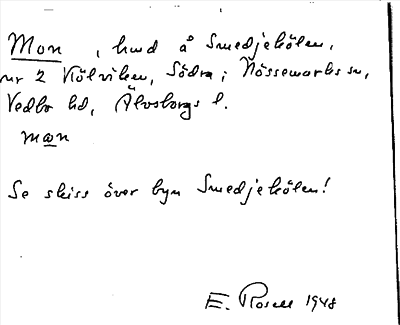 Mon, lund å Smedjekölen,
nr 2 Kölviken, Södra; Nössemarks sn,
Vedbo hd, Älvsborgs l.
mωn
Se skiss över byn Smedjekölen!
E. Rosell 1948